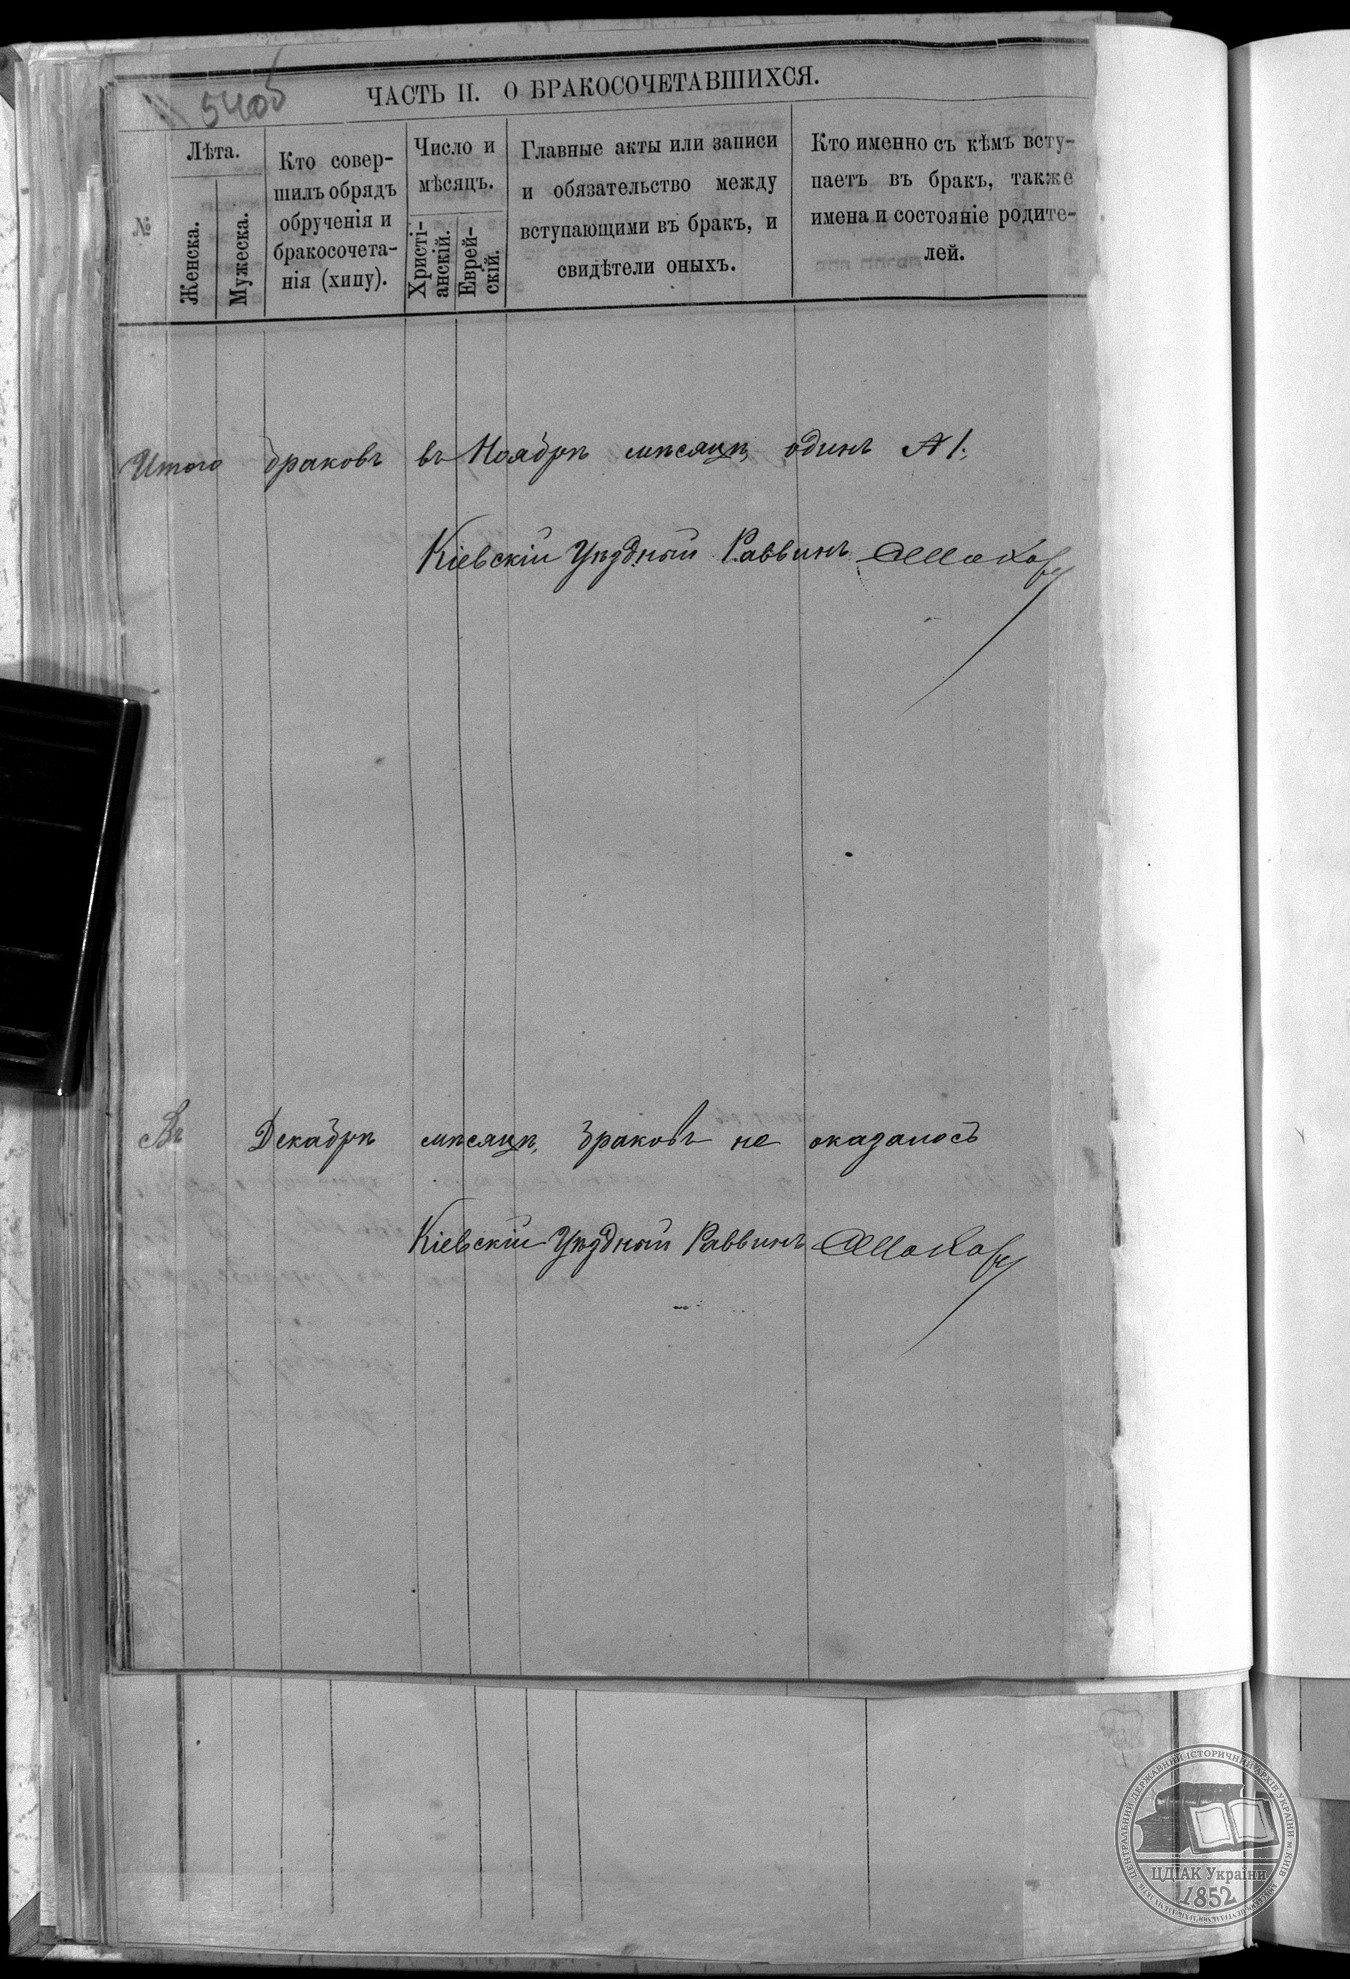 540об
ЧАСТЬ II. О БРАКОСОЧЕТАВШИХСЯ.
№
Лѣта.
Женска.
Мужеска.
Кто совер-
шилъ обрядъ
обрученія и
бракосочета-
нія (хипу).
Число и
мѣсяцъ.
Христі-
анскій.
Еврей-
скій.
Главные акты или записи
и обязательство между
вступающими въ бракъ, и
свидѣтели оныхъ.
Кто именно съ кѣмъ всту-
паетъ въ бракъ, также
имена и состояніе родите-
лей.
Итого браковъ въ Ноябрѣ мѣсяцѣ одинъ № 1.
Кіевскій Уѣздный Раввинъ
Въ Декабрѣ мѣсяцѣ браковъ не оказалось
Кіевскій Уѣздный Раввинъ
ЦЕНТРАЛЬНИЙ ДЕРЖАВНИЙ ІСТОРИЧНИЙ АРХІВ УКРАЇНИ м. КИЇВ
ЦДІАК України
1852